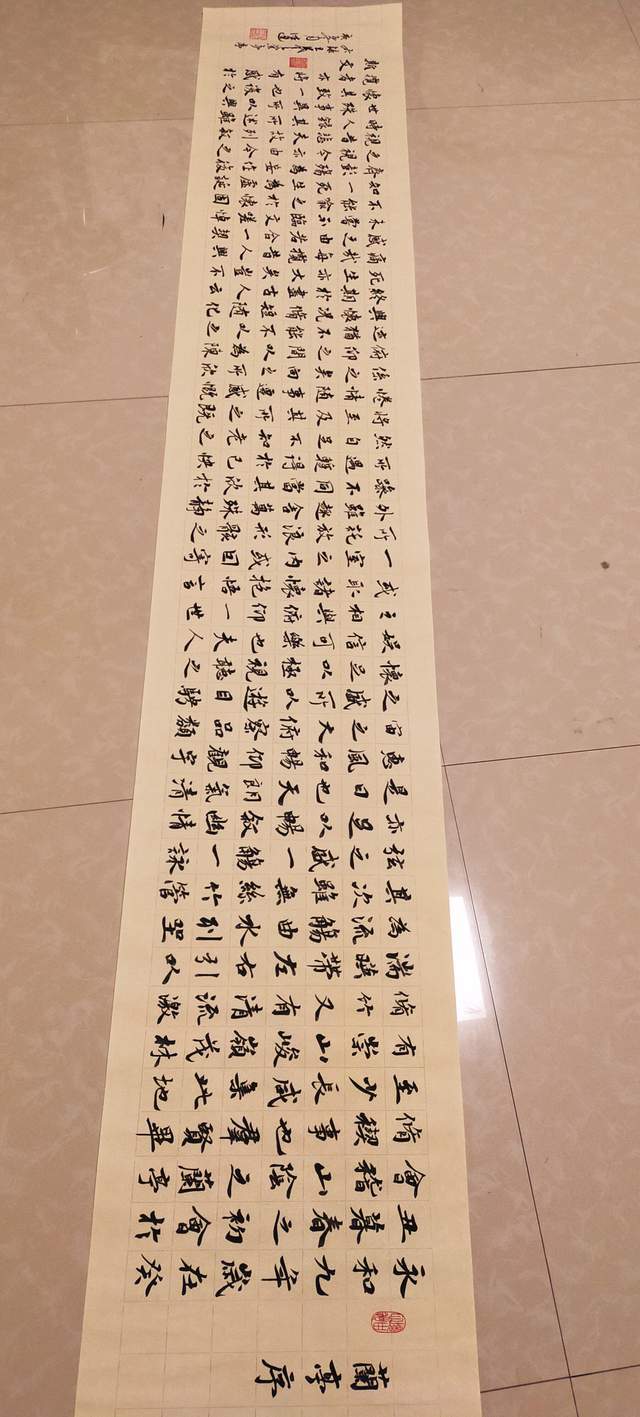 蘭亭序
永和九年歲在癸
丑暮春之初會於
會稽山陰之蘭亭
脩禊事也羣賢畢
至少長咸集此地
有崇山峻嶺茂林
脩竹又有清流激
湍暎帶左右引以
為流觴曲水列坐
其次雖無絲竹管
弦之盛一觴一詠
亦足以暢敘幽情
是日也天朗氣清
惠風和暢仰觀宇
宙之大俯察品類
之盛所以遊目騁
懷足以極視聽之
娛信可樂也夫人
之相與俯仰一世
或取諸懷抱悟言
一室之內或因寄
所託放浪形骸之
外雖趣舍萬殊靜
躁不同當其欣於
所遇蹔得於己快
然自足不知老之
將至及其所之既
惓情隨事遷感慨
係之矣向之所欣
俯仰之間以為陳
迹猶不能不以之
興懷況脩短隨化
終期於盡古人云
死生亦大矣豈不
痛哉每攬昔人興
感之由若合一契
未嘗不臨文嗟悼
不能喻之於懷固
知一死生為虛誕
齊彭殤為妄作後
之視今亦由今之
視昔悲夫故列敘
時人錄其所述雖
世殊事異所以興
懷其致一也後之
攬者亦將有感於
斯文